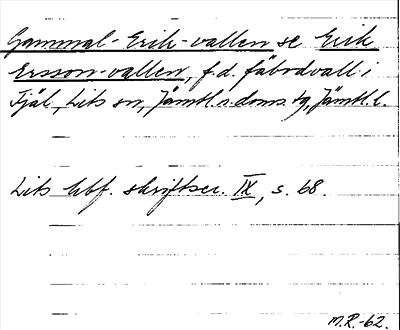 Gammal-Erik-vallen se Erik
Ersson-vallen, f.d. fäbodvall i
Fjäl, Lits sn, Jämtl. n. doms. tg, Jämtl. l.
Lits hbf. skriftser. IX, s. 68.
M.R.-62.